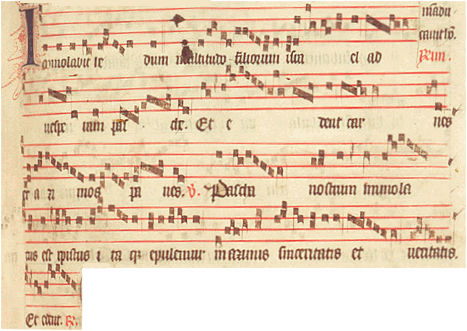 Immolabit e dum multitudo filiorum isra el ad
uespe ram pas che. Et e dent car nes
et a zi mos pa nes. V. Pascha nostrum immola
tus est xpistus i ta q epulemur in azimis sinceritatis et ueritatis.
Et edent.